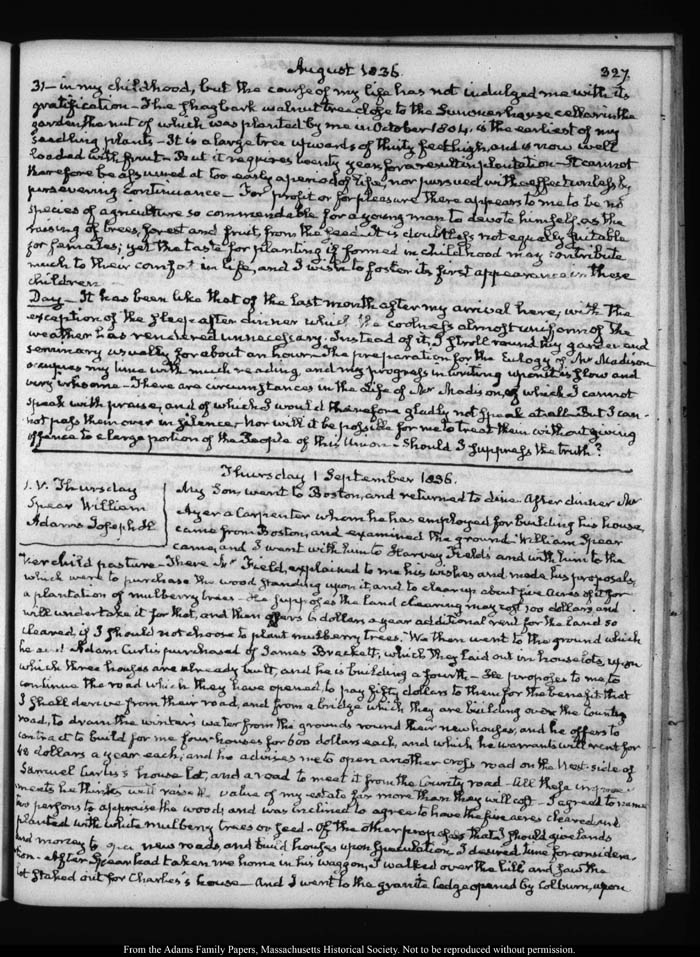 August 1836.
327.
31— in my childhood, but the course of my life has not indulged me with its
gratification— The shagbark walnut tree close to the Summerhouse cellar in the
garden, the nut of which was planted by me in October 1804. is the earliest of my
seedling plants— It is a large tree upwards of thirty feet high, and is now well
loaded with fruit— But it requires twenty years for a result in plantation— It cannot
therefore be assumed at too early a period of life, nor pursued with effect unless by
persevering continuance— For profit or for pleasure there appears to me to be no
species of agriculture so commendable for a young man to devote himself, as the
raising of trees, forest and fruit, from the seed— It is doubtless not equally suitable
for females; yet the taste for planting if formed in childhood may contribute
much to their comfort in life, and I wish to foster its first appearance in these
children—
Day— It has been like that of the last month after my arrival here, with the
exception of the sleep after dinner which the coolness almost uniform of the
weather has rendered unnecessary. Instead of it, I stroll round my garden and
seminary usually for about an hour— The preparation for the Eulogy of Mr Madison
occupies my time with much reading, and my progress in writing upon it is slow and
very irksome— There are circumstances in the Life of Mr Madison, of which I cannot
speak with praise, and of which I would therefore gladly not speak at all— But I can-
not pass them over in silence— Nor will it be possible for me to treat them without giving
offence to a large portion of the People of this Union— Should I suppress the truth?
Thursday 1 September 1836.
1. V. Thursday
Spear William
Adams Joseph H
My Son, went to Boston, and returned to dine. After dinner Mr
Ayer a Carpenter whom he has employed for building his house,
came from Boston, and examined the ground. William Spear
came, and I went with him to Harvey Field's and with him to the
child pasture— There Mr Field, explained to me his wishes and made his proposals,
which were to purchase the wood standing upon it, and to clear up about five Acres of it for
a plantation of mulberry trees— He supposes the land clearing may cost 100 dollars, and
will undertake it for that, and then offers 6 dollars a year additional rent for the land so
cleared, if I should not choose to plant mulberry trees. We then went to the ground which
he and Adam Curtis purchased of James Brackett, which they laid out in house lots, upon
which three houses are already built, and he is building a fourth— He proposes to me to
continue the road which they have opened, to pay fifty dollars to them for the benefit that
I shall derive from their road, and from a bridge which they are building over the County
road, to drain the winter's water from the grounds round their new houses, and he offers to
contract to build for me four houses for 600 dollars each, and which he warrants will rent for
48 dollars a year each; and he advises me to open another cross road on the West side of
Samuel Curtis's house lot, and a road to meet it from the County road— All these improve-
ments he thinks will raise the value of my estate far more than they will cost— I agreed to name
two persons to appraise the wood, and was inclined to agree to have the five acres cleared and
planted with white mulberry trees or seed— Of the other purposes that I should give lands
and money to open new roads, and build houses upon speculation, I desired time for considera-
tion— After Spear had taken me home in his waggon, I walked over the hill and saw the
lot staked out for Charles's house— And I went to the granite ledge opened by Colburn, upon
From the Adams Family Papers, Massachusetts Historical Society. Not to be reproduced without permission.